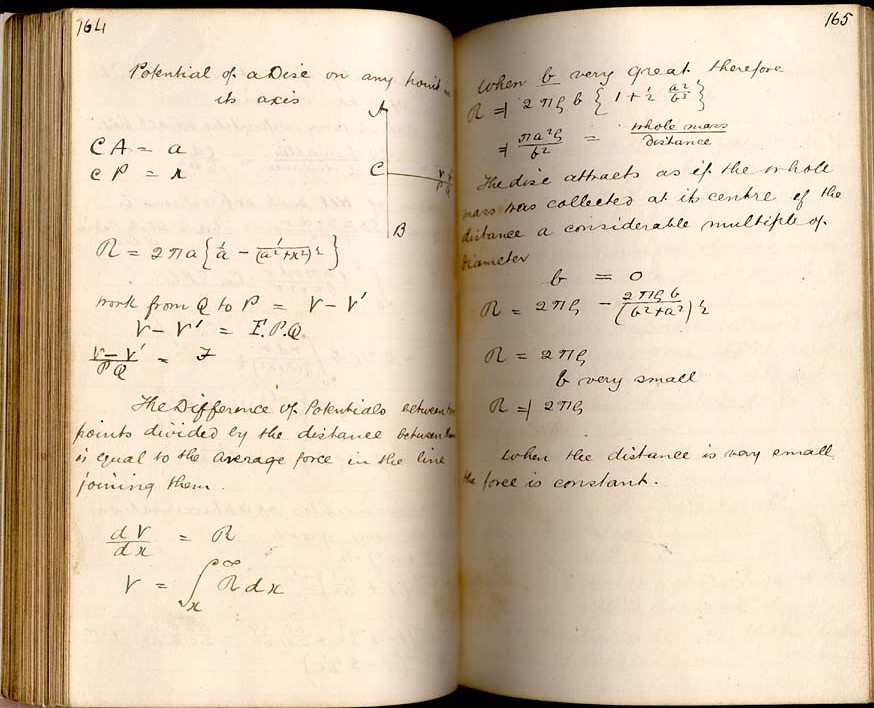 164
Potential of a Disc on any point
its axis
A
CA = a
CP = x
C
V
P Q
B
R = 2πa { 1/a - 1/(a² + x²)^½ }
work from Q to P = V - V'
V - V' = F.P.Q.
V - V' / PQ = F
The Difference of Potentials between
points divided by the distance between
is equal to the average force in the line
joining them.
dV/dx = R
V = ∫_x^∞ R dx
165
When b very great therefore
R =| 2πρ b { 1 + ½ a²/b³ }
=| πa²ρ/b² = whole mass/Distance
The disc attracts as if the whole
mass was collected at its centre if the
distance a considerable multiple of
diameter
b = 0
R = 2πρ - 2πρb/(b² + a²)^½
R = 2πρ
b very small
R =| 2πρ
When the distance is very small
the force is constant.